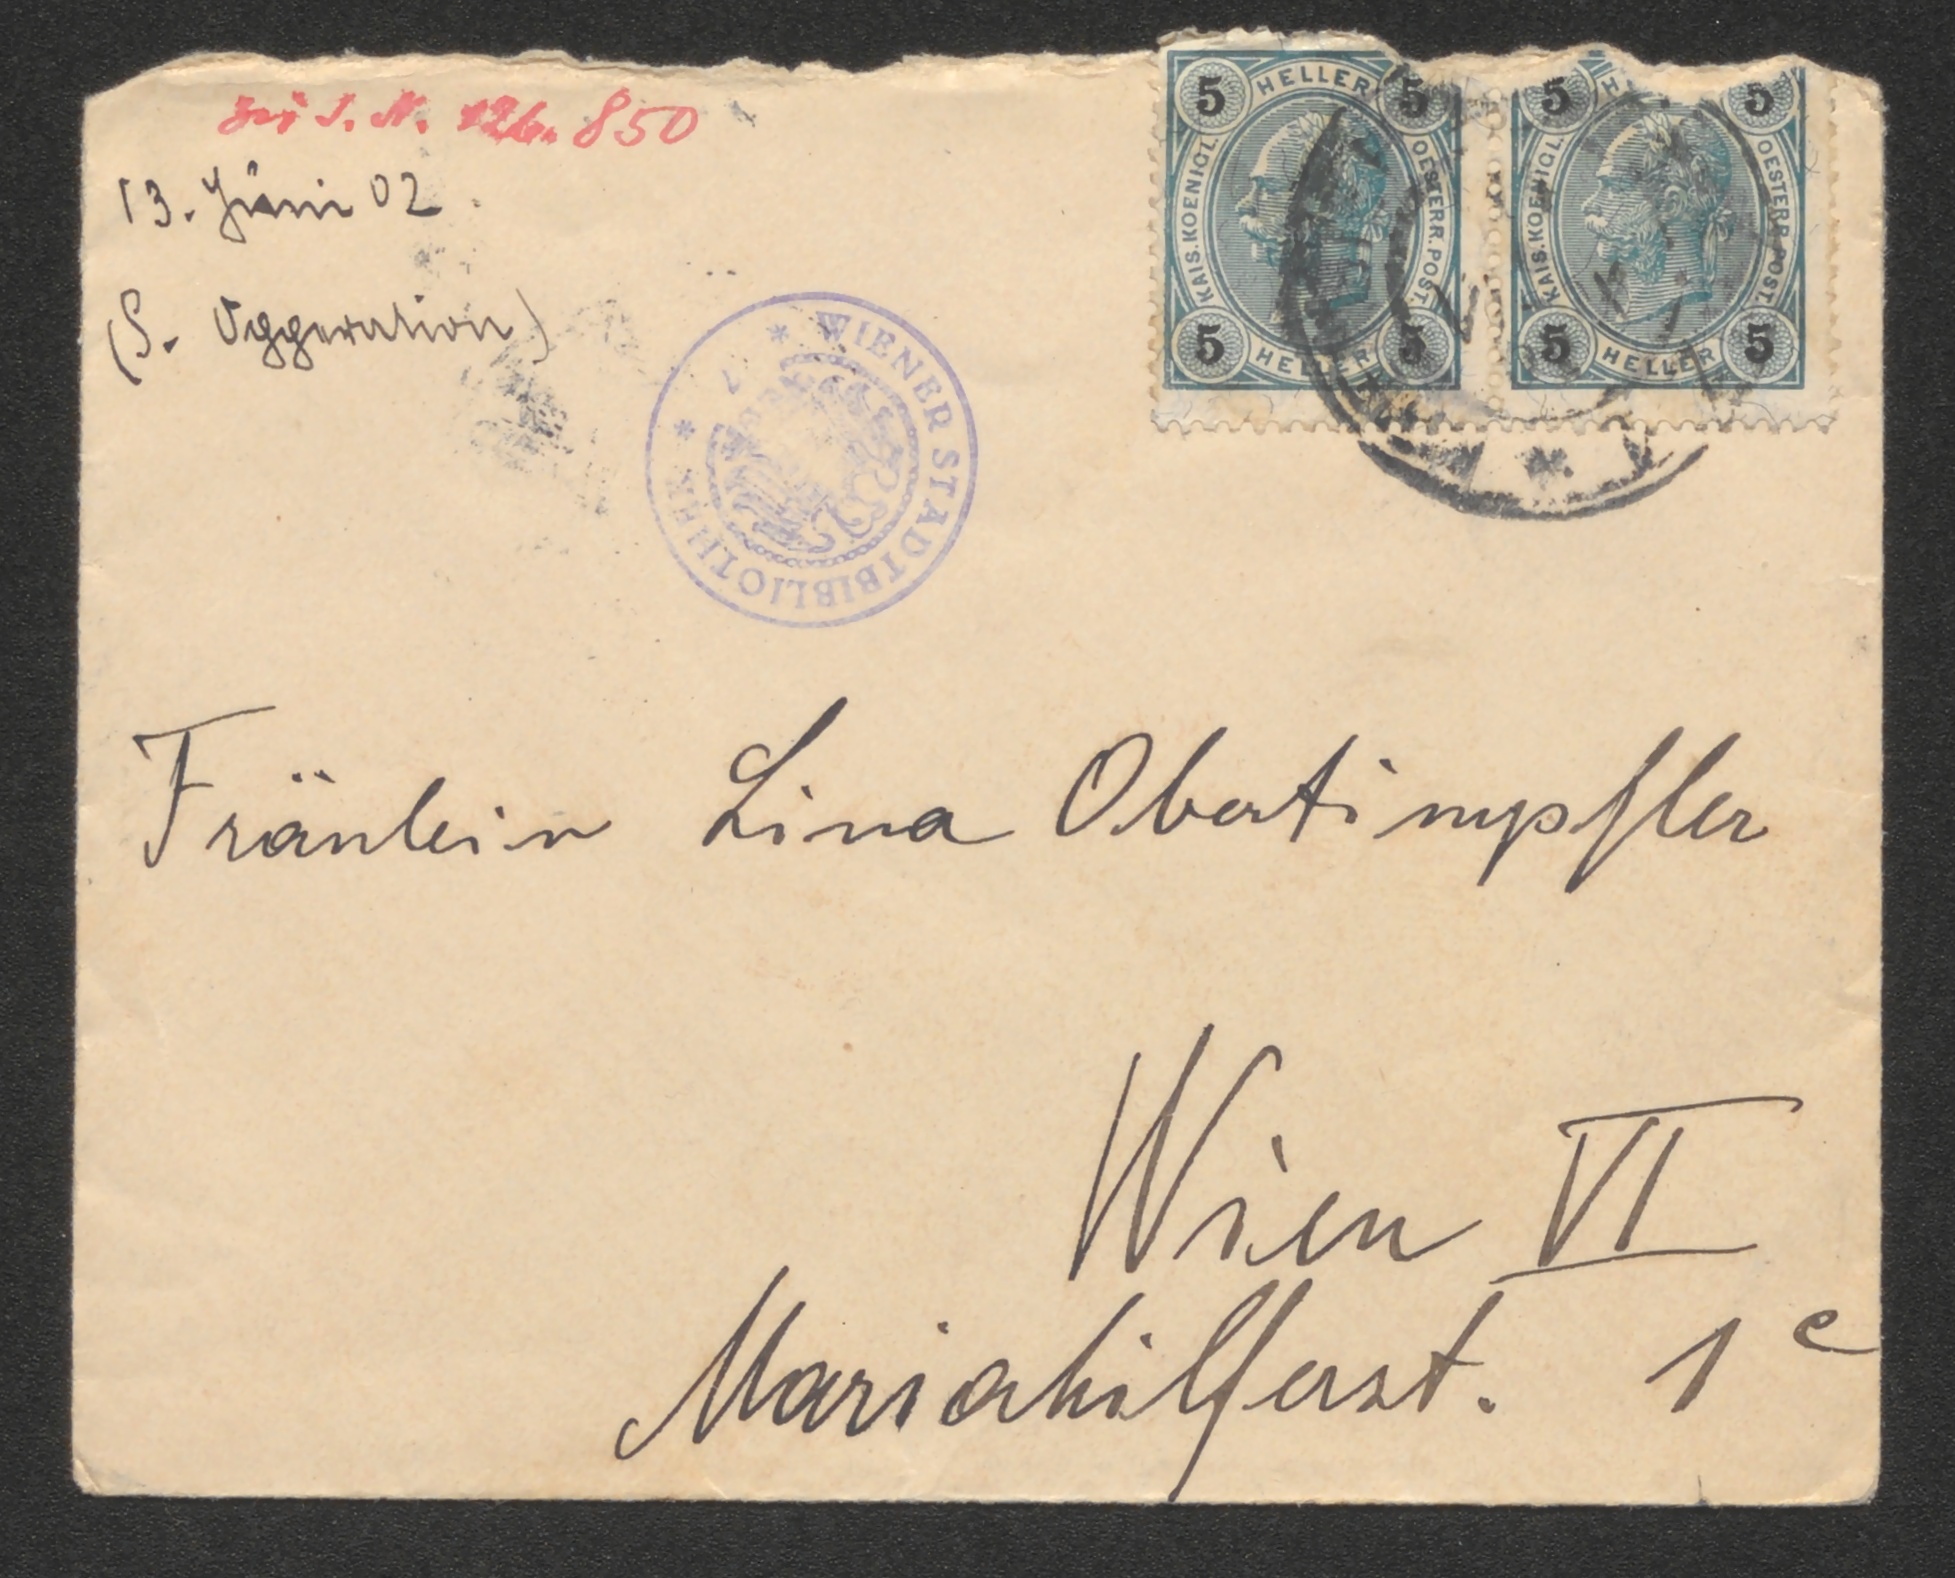 zu I. N. 126.850
13. Juni 02
(S. Operation)
5 HELLER 5
KAIS. KOENIGL. OESTERR. POST.
5 HELLER 5
5 5
KAIS. KOENIGL. OESTERR. POST.
5 HELLER 5
* WIENER STADTBIBLIOTHEK * 7
Fräulein Lina Obertimpfler
Wien VI
Mariahilferst. 1c